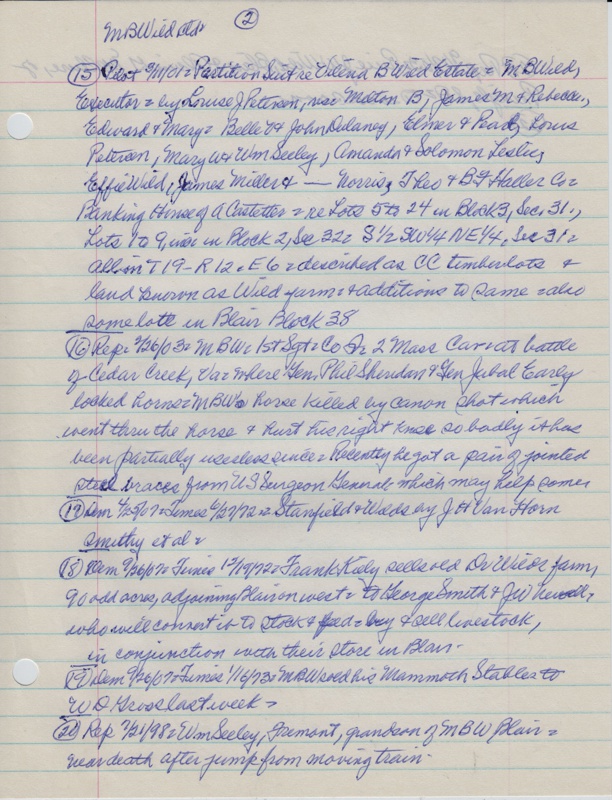 MBWild etds (2)
(15) Pilot 9/11/01 = Partition Suit re Orlend B Wild Estate = MBWild,
Executor = by Louise J Petersen, nee Maton B, James M & Rebecca,
Edward & Mary = Belle Y & John Delaney, Elmer & Pearl, Louis
Petersen, Mary W & Wm Seeley, Amanda & Solomon Leslie,
Effie Wild, James Miller & — Norris, Theo & B F Haller Co =
Banking House of A Castetter = re Lots 5 to 24 in Block 3, Sec. 31.,
Lots 1 to 9, in Block 2, Sec 32 = S 1/2 SW 1/4 NE 1/4, Sec 31 =
all in T19 - R12 = E6 = described as CC timberlots &
land known as Wild farm = & additions to same = also
some lots in Blair Block 38
(16) Rep = 3/26/03 = MBW = 1st Sgt = Co 2 Mass Cav = at battle
of Cedar Creek, Va = where Gen. Phil Sheridan & Gen Jubal Earley
locked horns = MBWs horse killed by canon shot which
went thru the horse & hurt his right knee so badly it has
been partially useless since = Recently he got a pair of jointed
steel braces from US Surgeon General which may help some =
(17) Dem 4/25/07 = Times 6/27/72 = Stanfield & Wades by J H Van Horn
Smithy et al =
(18) Dem 9/26/07 = Times 12/19/72 = Frank Kiely sells old Dr Wilds farm,
90 odd acres, adjoining Blair on west = to George Smith & JW
who will convert it to stock & feed = buy & sell livestock,
in conjunction with their store in Blair.
(19) Dem 9/26/07 = Times 1/16/73 = MBW sold his Mammoth Stables to
W D Gross last week =
(20) Rep 7/21/98 = Wm Seeley, Fremont, grandson of MBW Blair =
near death after jump from moving train.